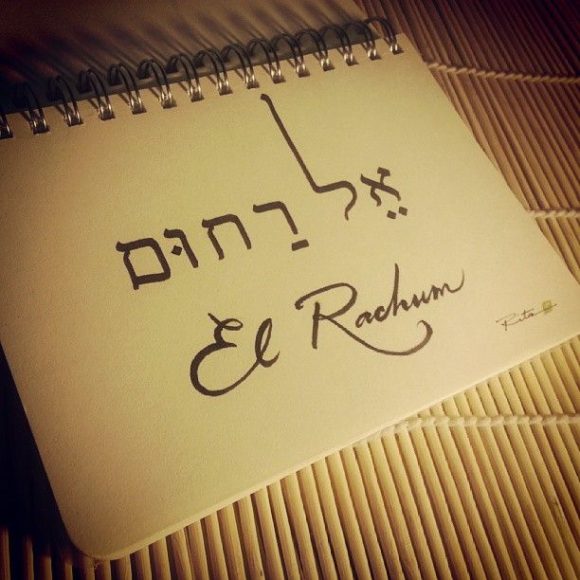 אֶל רַחוּם
El Rachum
Rita